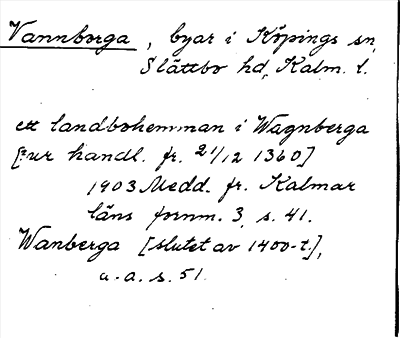 Vannborga, byar i Köpings sn,
Slättbo hd, Kalm. l.
ett landbohemman i Wagnberga
[ur handl. fr. 21/12 1360]
1903 Medd. fr. Kalmar
läns fornm. 3, s. 41.
Wanberga [slutet av 1400-t.],
a.a. s. 51.